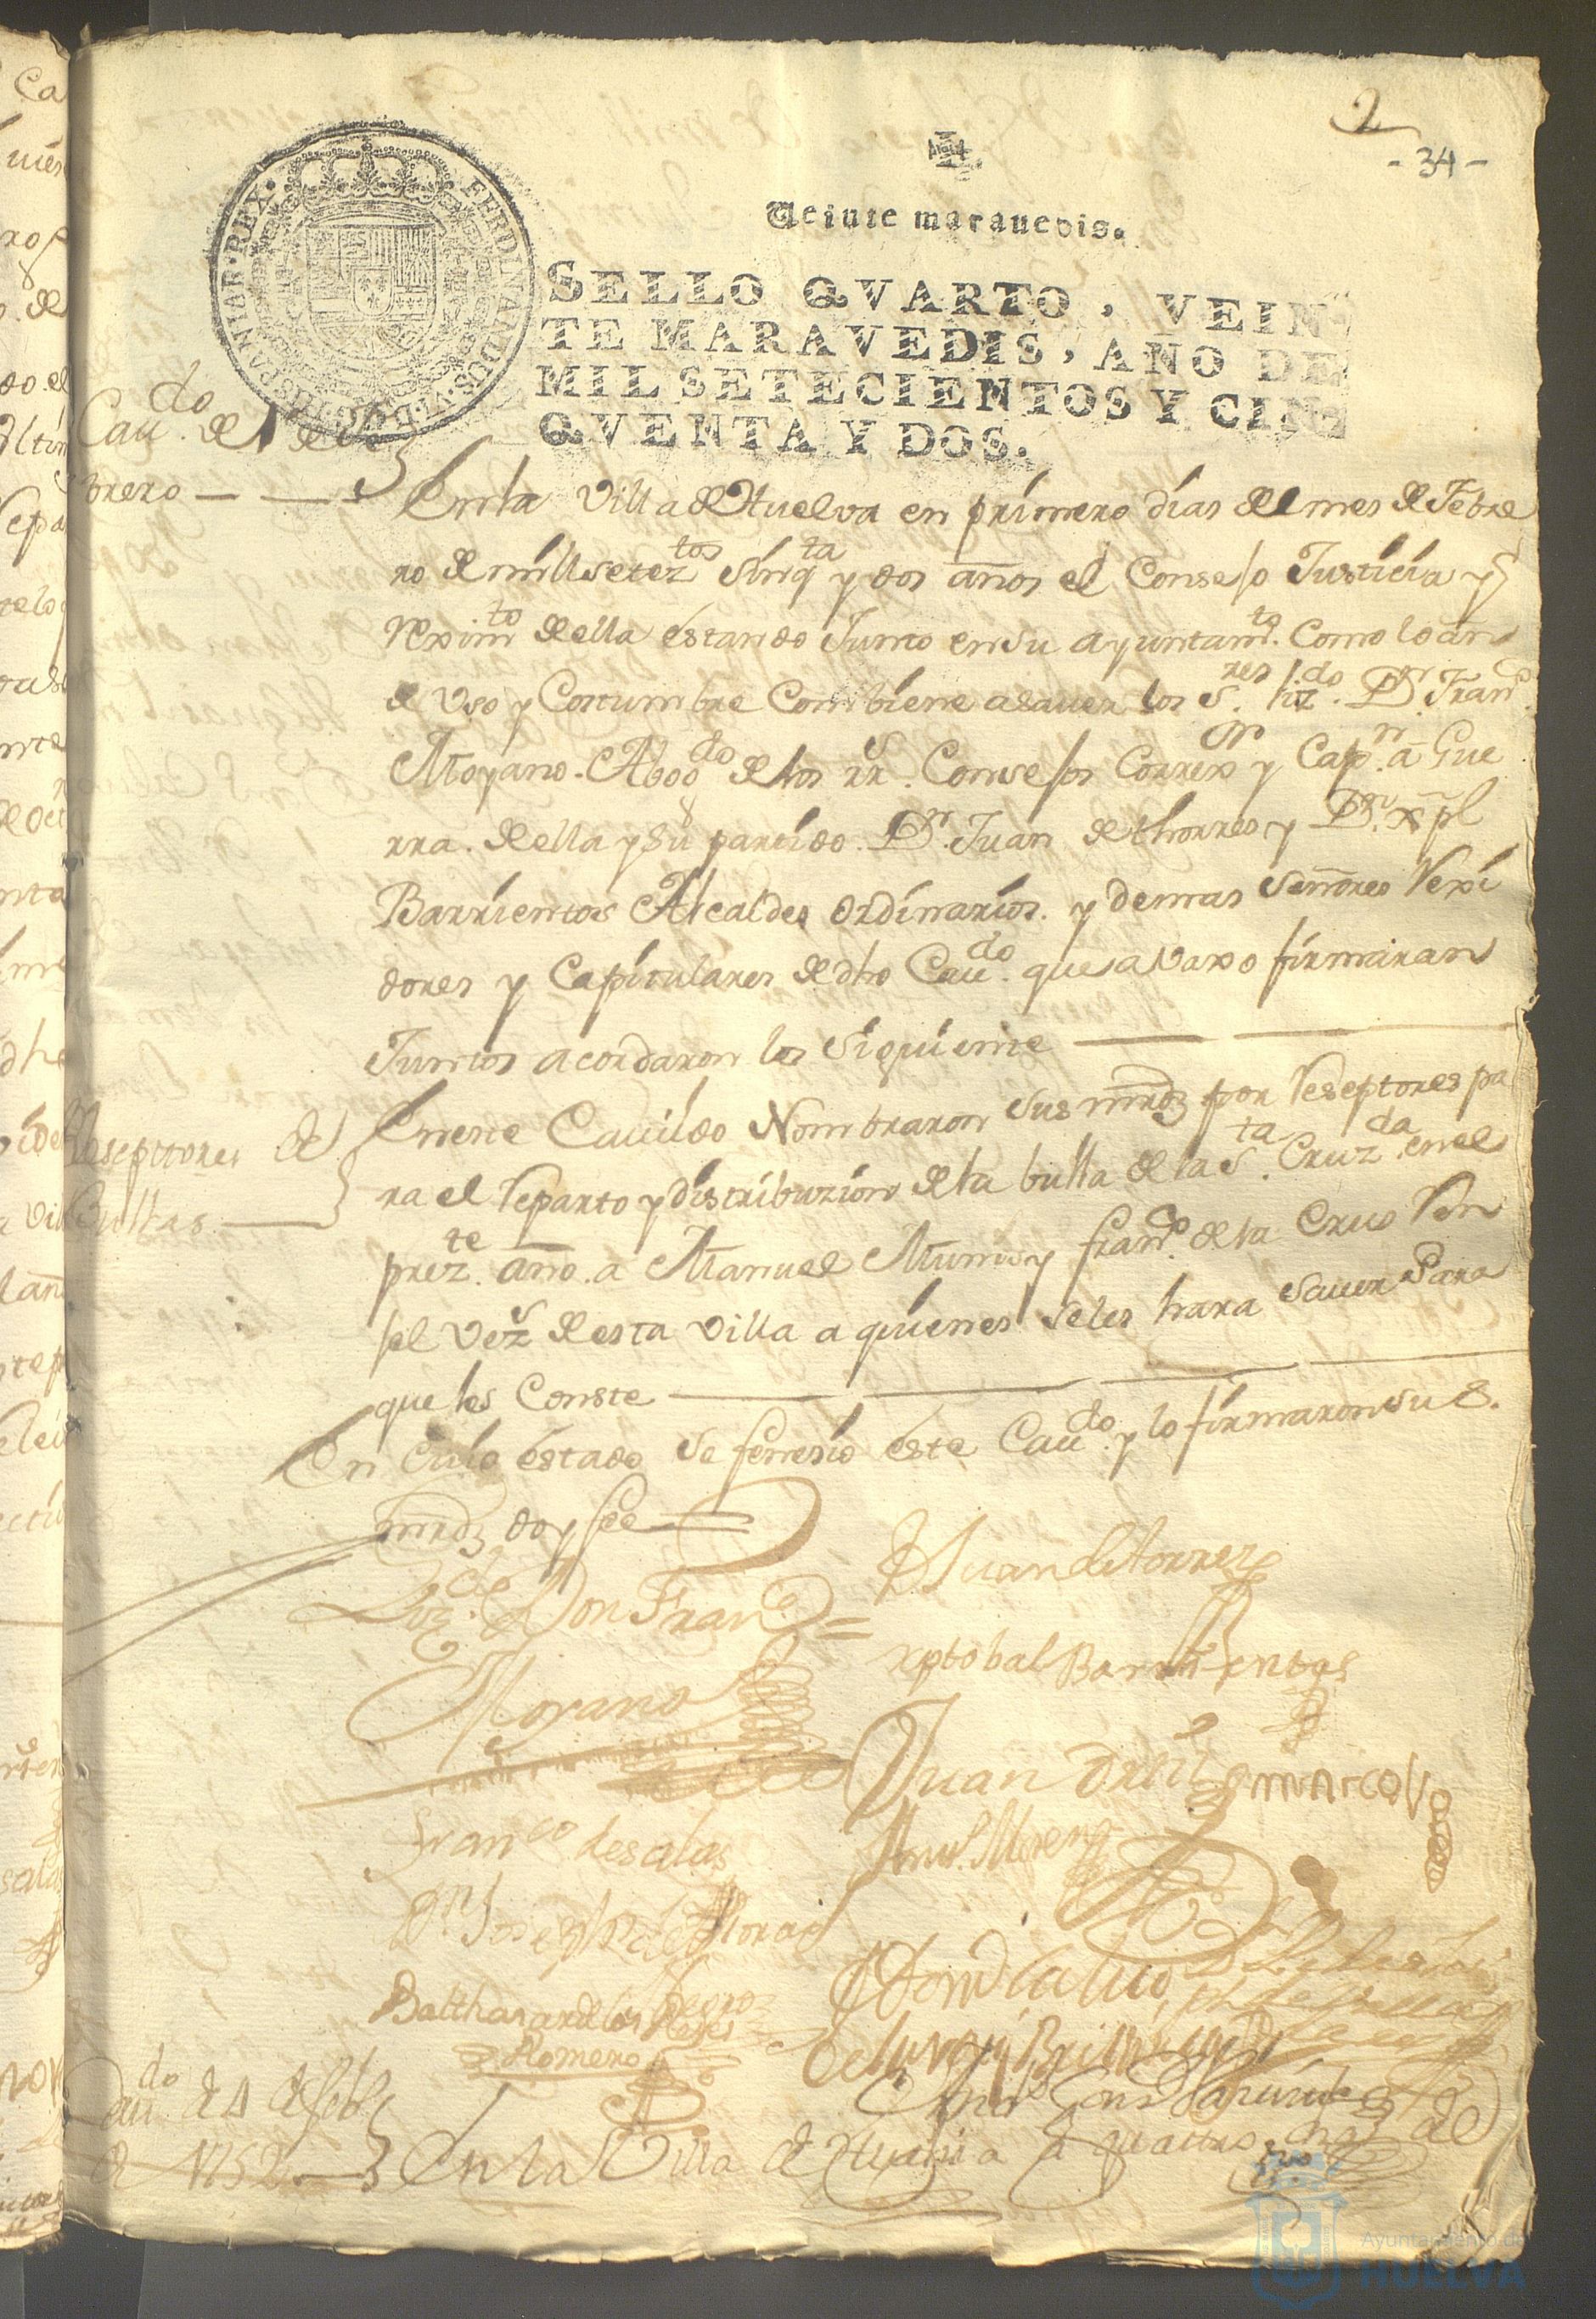 2
- 34 -
Veinte maravedis.
SELLO QVARTO, VEIN-
TE MARAVEDIS, AÑO DE
MIL SETECIENTOS Y CIN-
QVENTA Y DOS.
FERDINANDUS VI HISPANIAR REX
Cau.do de 1 de Fe
brero
En la Villa de Huelva en primero dias del mes de Febre
ro de mill setez.tos sinq.ta y dos años el Consejo Justicia y
Rexim.to de ella estando Junto en su ayuntam.to como lo an
de Vso y Costumbre Combiene a sauer los S.res liz.do Dn. Fran.co
Moyano. Abog.do de los rr.s Consejos Correx.or y Cap.n a Gue
rra. de ella y su partido. Dn. Juan de thorres y Dn. xpl
Barrientos Alcaldes ordinarios. y demas Señores Rexi
dores y Capitulares de dho Cau.do que auaxo firmaran
Juntos acordaron lo siguiente
Reseptores de
Bullas
En este Cauildo Nombraron sus mrds por Reseptores pa
ra el Reparto y distribuzion de la bulla de la S.ta Cruz.da en el
prez.te año a Manuel Munis y fran.co de la Crus Ran
jel vez.s de esta villa a quienes se les hara sauer Para
que les Conste
En cuio estado se fenesio este Cau.do y lo firmaron sus.
mrds doy fee
Liz.do Don Fran.co
Moyano
D Juan de torres
xptobal Barrientos
Juan Ortiz
marcos
Fran.co de salas
Man.l Moreno
Dn Joseph de Mora
Balthasar de los Reyes
Romero
Cau.do de 4 de feb.o
de 1752
En la Villa de Huelva a quattro dias de
Ayuntamiento de
HUELVA